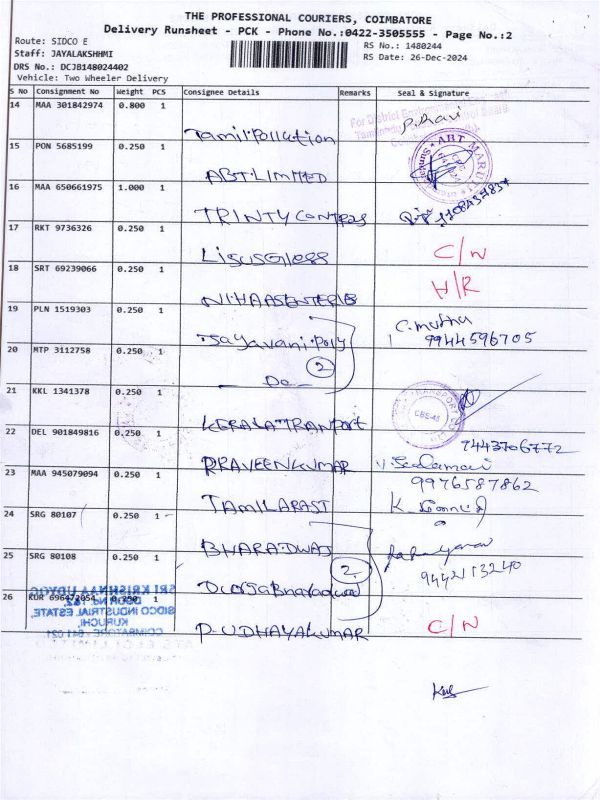 THE PROFESSIONAL COURIERS, COIMBATORE
Delivery Runsheet - PCK - Phone No.:0422-3505555 - Page No.:2
Route: SIDCO E
RS No.: 1480244
Staff: JAYALAKSHHMI
RS Date: 26-Dec-2024
DRS No.: DCJB148024402
Vehicle: Two Wheeler Delivery
S No Consignment No Weight PCS Consignee Details Remarks Seal & Signature
14 MAA 301842974 0.800 1 Tamil.Pollution P.Ravi
15 PON 5685199 0.250 1 ABT.LIMITED
16 MAA 650661975 1.000 1 TRINTY CONTROLS
17 RKT 9736326 0.250 1 C/N
18 SRT 69239066 0.250 1 H/R
19 PLN 1519303 0.250 1 Jayavani.Poly C.muthu
9944596705
20 MTP 3112758 0.250 1 Do 2
21 KKL 1341378 0.250 1 KERALA TRANPORT
22 DEL 901849816 0.250 1 PRAVEENKUMAR 9443706772
23 MAA 945079094 0.250 1 TAMILARAST 9976587862
24 SRG 80107 0.250 1 BHARADWAJ
25 SRG 80108 0.250 1 2 9442113240
26 KUR 696472054 0.250 1 P.UDHAYAKUMAR C/N
SRI KRISHNAA UDYOG
SIDCO INDUSTRIAL ESTATE,
KURUCHI,
COIMBATORE - 641 021